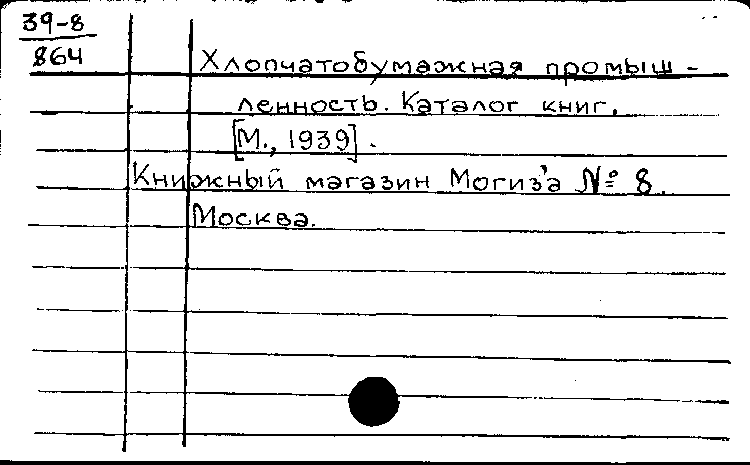 39-8
864
Хлопчатобумажная промыш-
ленность. Каталог книг.
[М., 1939].
Книжный магазин Могиз'а № 8.
Москва.